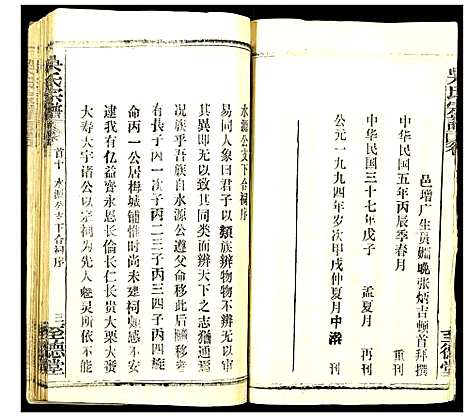 邑增广生员婣晚张炳吉顿首拜撰
中华民国五年丙辰季春月 重刊
中华民国三十七年戊子 孟夏月 再刊
公元一九九四年岁次甲戌仲夏月中浣 刊
至德堂
吴氏宗谱
首十 水源公支下合祠序
水源公支下合祠序
易同人象曰君子以类族辨物物不辨无以审
其异即无以致其同于以辨天下之志犹通焉
况族乎吾族自水源公遵父命
有长子丙一次子丙二三子丙三四子丙四
公一人居梅城铺惟时尚未建祠颇感不安
逮我有亿益斋永恩长伦长仁长贵大荣大
大寿大宇诸公以宗祠为先人魁灵所依不能
三
至德堂